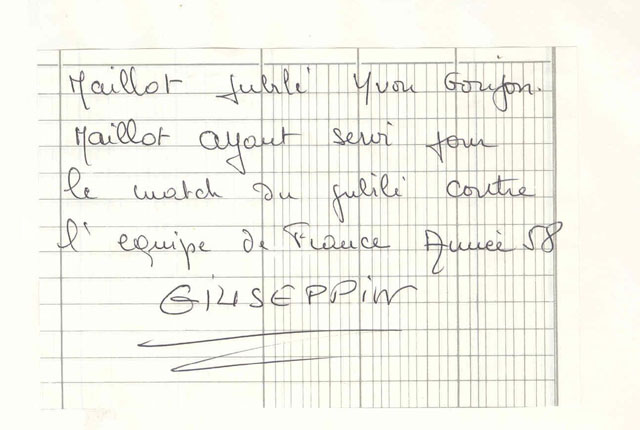 Maillot Jubilé Yvon Goujon.
Maillot ayant servi pour
le match du jubilé contre
l'equipe de France Année 58
GIUSEPPIN